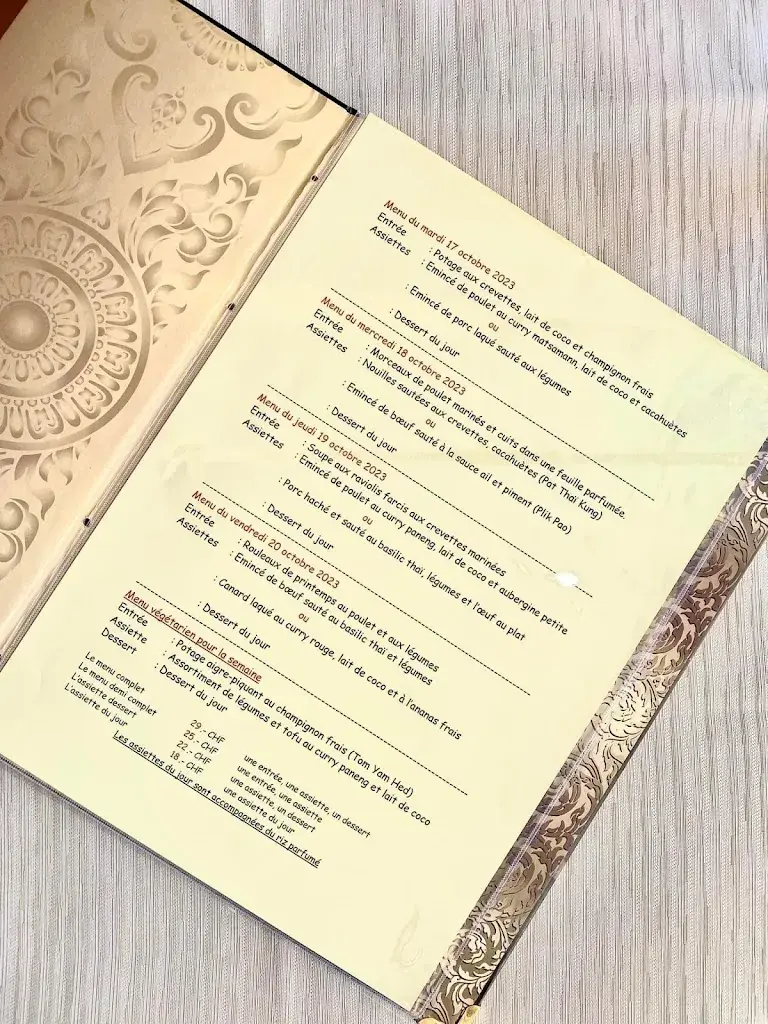 Menu du mardi 17 octobre 2023
Entrée : Potage aux crevettes, lait de coco et champignon frais
Assiettes : Emincé de poulet au curry matsamann, lait de coco et cacahuètes
ou
: Emincé de porc laqué sauté aux légumes
: Dessert du jour
Menu du mercredi 18 octobre 2023
Entrée : Morceaux de poulet marinés et cuits dans une feuille parfumée.
Assiettes : Nouilles sautées aux crevettes, cacahuètes (Pat Thaï Kung)
ou
: Emincé de bœuf sauté à la sauce ail et piment (Plik Pao)
: Dessert du jour
Menu du jeudi 19 octobre 2023
Entrée : Soupe aux raviolis farcis aux crevettes marinées
Assiettes : Emincé de poulet au curry paneng, lait de coco et aubergine petite
ou
: Porc haché et sauté au basilic thaï, légumes et l'œuf au plat
: Dessert du jour
Menu du vendredi 20 octobre 2023
Entrée : Rouleaux de printemps au poulet et aux légumes
Assiettes : Emincé de bœuf sauté au basilic thaï et légumes
ou
: Canard laqué au curry rouge, lait de coco et à l'ananas frais
: Dessert du jour
Menu végétarien pour la semaine
Entrée : Potage aigre-piquant au champignon frais (Tom Yam Hed)
Assiette : Assortiment de légumes et tofu au curry paneng et lait de coco
Dessert : Dessert du jour
Le menu complet 29.- CHF une entrée, une assiette, un dessert
Le menu demi complet 25.- CHF une entrée, une assiette
L'assiette dessert 22.- CHF une assiette, un dessert
L'assiette du jour 18.- CHF une assiette du jour
Les assiettes du jour sont accompagnées du riz parfumé